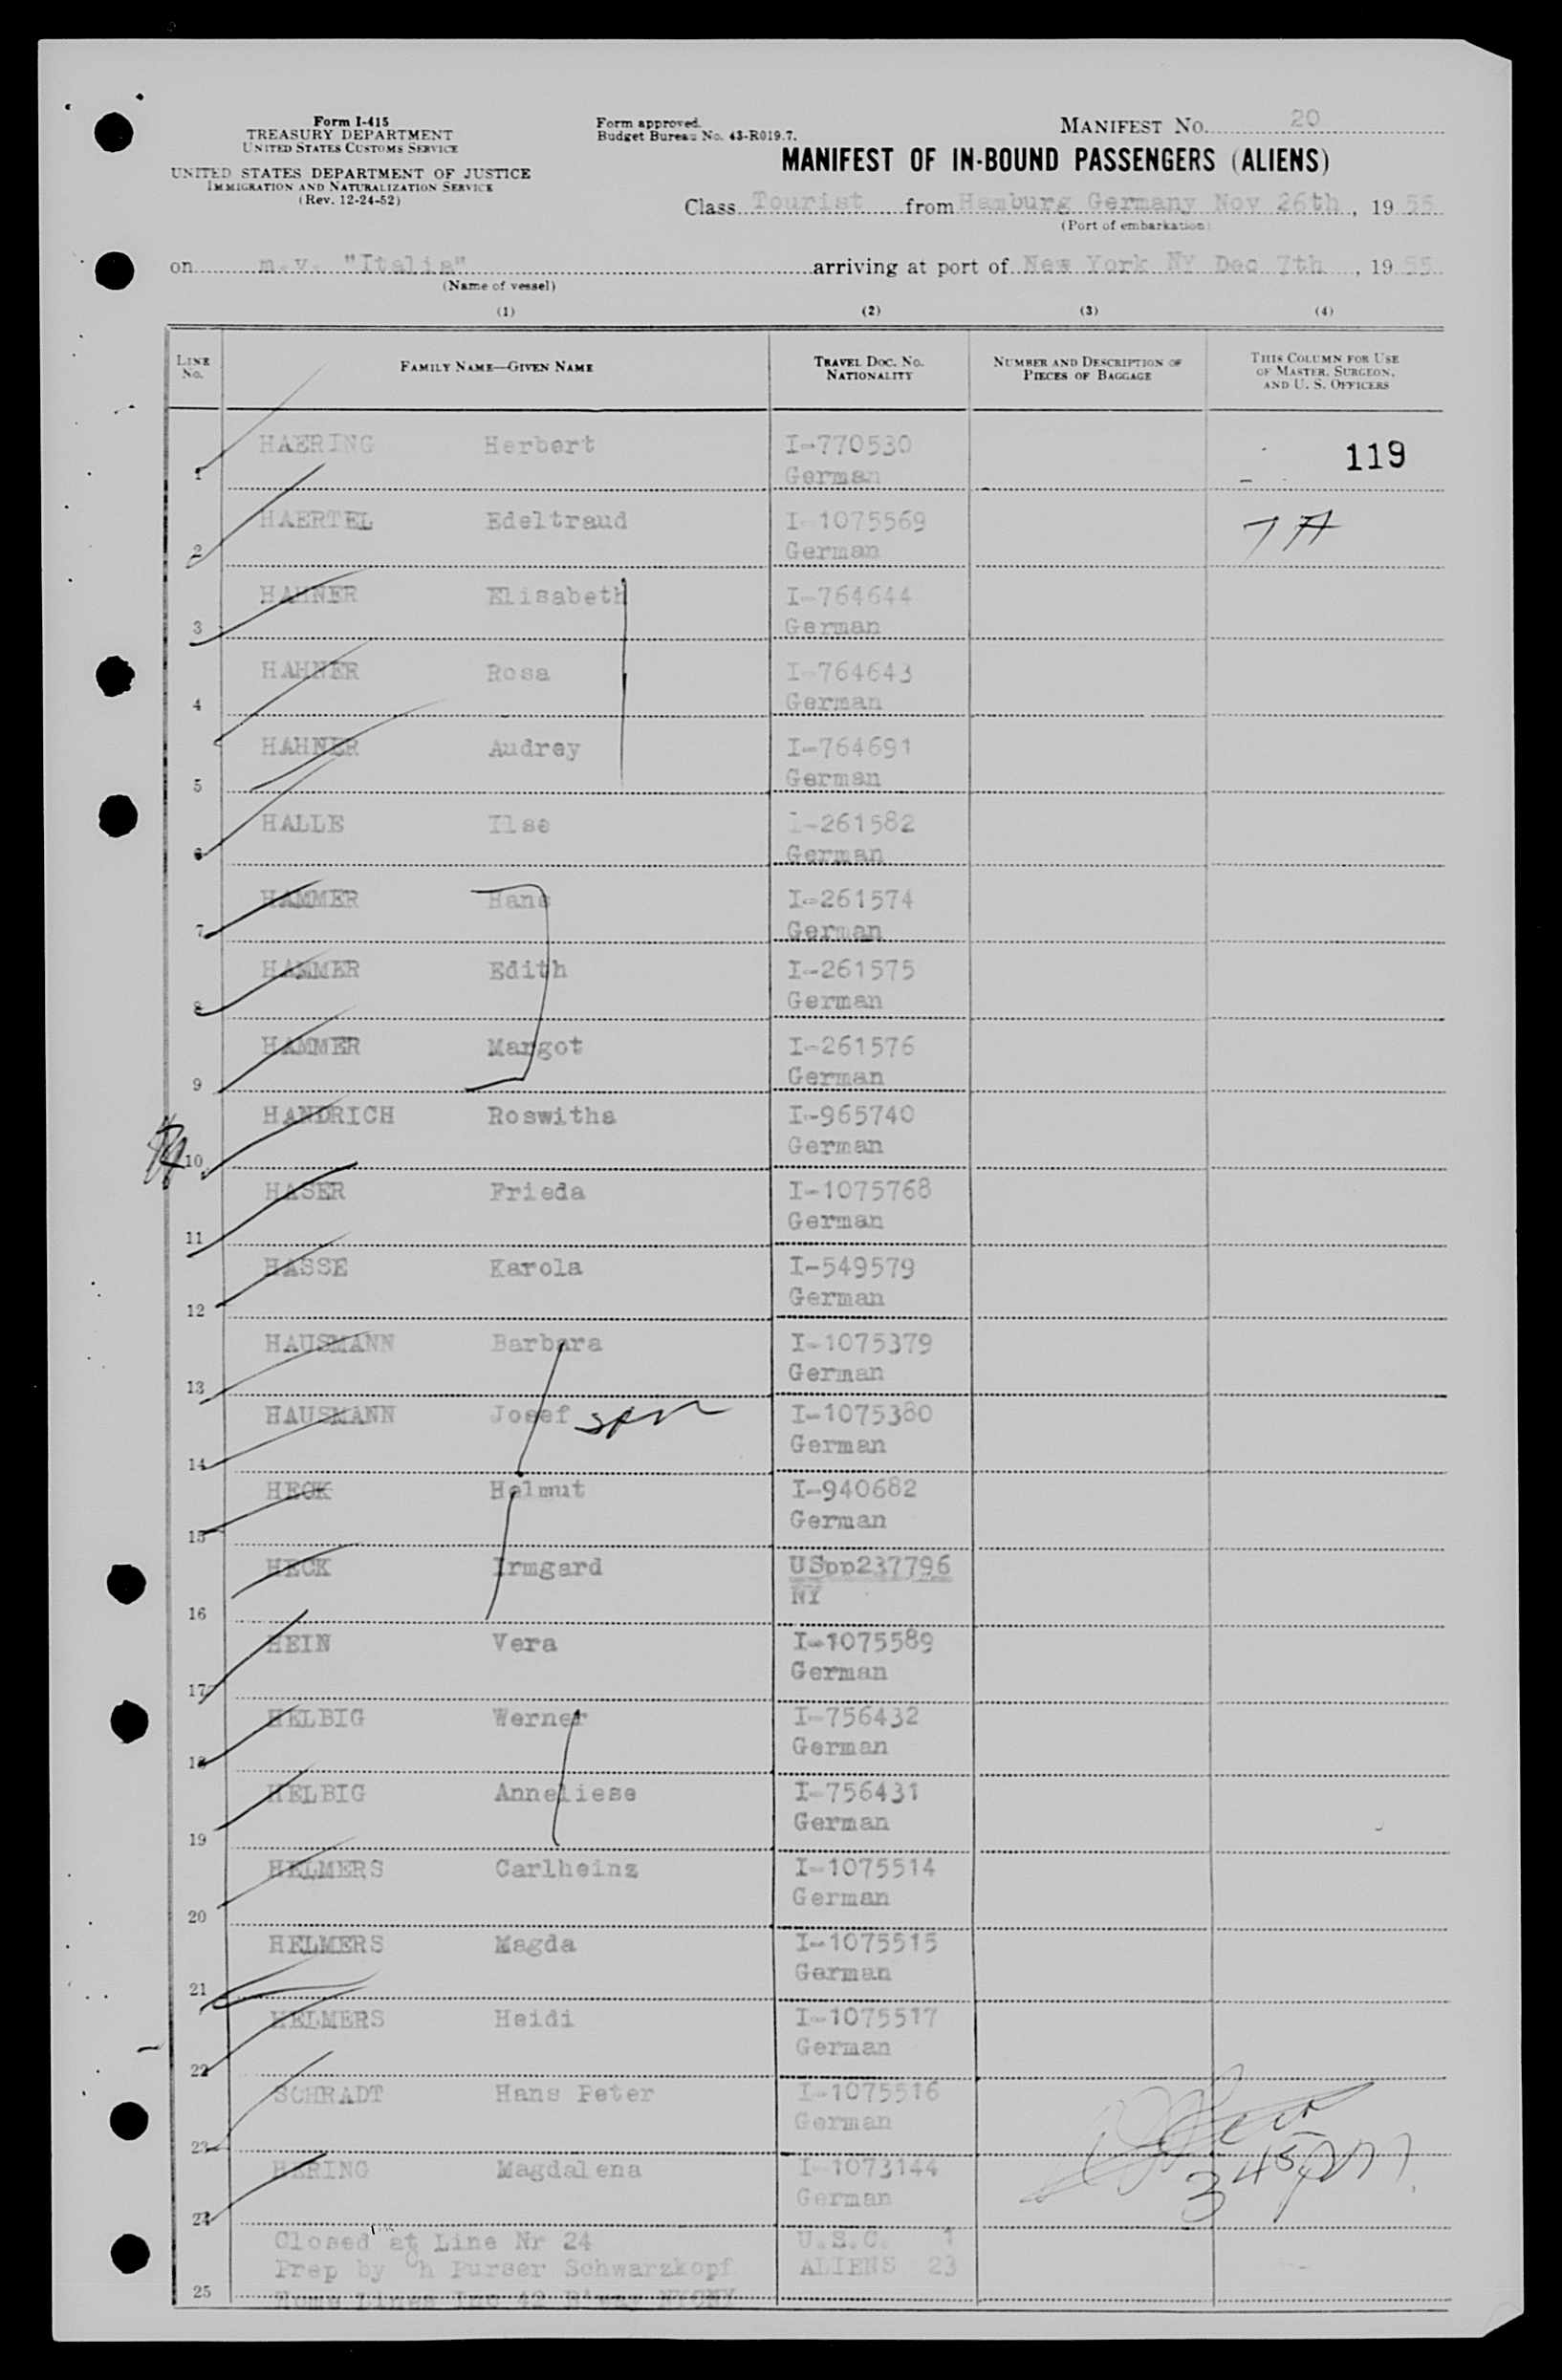 Form I-415
TREASURY DEPARTMENT
UNITED STATES CUSTOMS SERVICE
UNITED STATES DEPARTMENT OF JUSTICE
IMMIGRATION AND NATURALIZATION SERVICE
(Rev. 12-24-52)
Form approved.
Budget Bureau No. 43-R019.7.
MANIFEST NO. 20
MANIFEST OF IN-BOUND PASSENGERS (ALIENS)
Class Tourist from Hamburg Germany Nov 26th, 19 55
(Port of embarkation)
on m.v. "Italia" arriving at port of New York NY Dec 7th, 19 55
(Name of vessel)
(1) (2) (3) (4)
LINE No. FAMILY NAME—GIVEN NAME TRAVEL DOC. NO. NATIONALITY NUMBER AND DESCRIPTION OF PIECES OF BAGGAGE THIS COLUMN FOR USE OF MASTER, SURGEON, AND U. S. OFFICERS
1 HAERING Herbert I-770530 119
German
2 HAERTEL Edeltraud I-1075569
German
3 HAHNER Elisabeth I-764644
German
4 HAHNER Rosa I-764643
German
5 HAHNER Audrey I-764691
German
6 HALLE Ilse I-261582
German
7 HAMMER Hans I-261574
German
8 HAMMER Edith I-261575
German
9 HAMMER Margot I-261576
German
10 HANDRICH Roswitha I-965740
German
11 HASER Frieda I-1075768
German
12 HASSE Karola I-549579
German
13 HAUSMANN Barbara I-1075379
German
14 HAUSMANN Josef I-1075380
German
15 HECK Helmut I-940682
German
16 HECK Irmgard USpp237796
NY
17 HEIN Vera I-1075589
German
18 HELBIG Werner I-756432
German
19 HELBIG Anneliese I-756431
German
20 HELMERS Carlheinz I-1075514
German
21 HELMERS Magda I-1075515
German
22 HELMERS Heidi I-1075517
German
23 SCHRADT Hans Peter I-1075516
German
24 HERING Magdalena I-1073144
German
Closed at Line Nr 24 U.S.C. 1
Prep by Ch Purser Schwarzkopf ALIENS 23
25 Home Lines Inc 42 B'way NYCNY